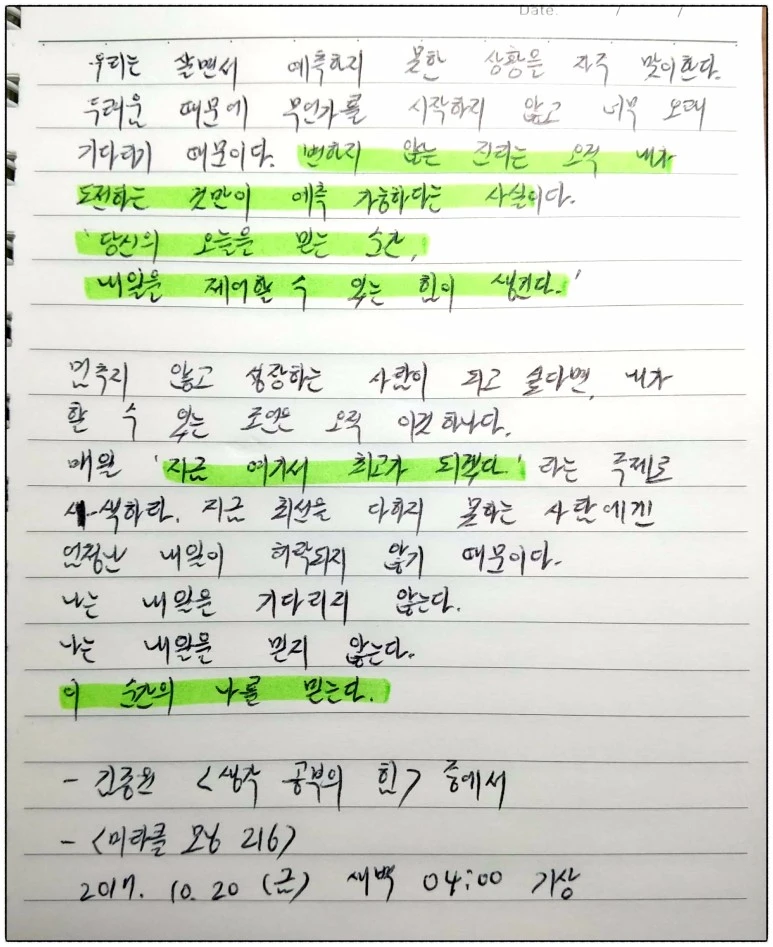 Date. / /
우리는 살면서 예측하지 못한 상황을 자주 맞이한다.
두려움 때문에 무언가를 시작하지 않고 너무 오래
기다리기 때문이다. '변하지 않는 진리는 오직 내가
도전하는 것만이 예측 가능하다는 사실이다.
'당신의 오늘을 믿는 순간,
내일을 제어할 수 있는 힘이 생긴다.'
멈추지 않고 성장하는 사람이 되고 싶다면, 내가
할 수 있는 조언은 오직 이것 하나다.
매일 '지금 여기서 최고가 되겠다.' 라는 주제로
사색하라. 지금 최선을 다하지 못하는 사람에겐
엄청난 내일이 허락되지 않기 때문이다.
나는 내일을 기다리지 않는다.
나는 내일을 믿지 않는다.
이 순간의 나를 믿는다.
- 김종원 <생각 공부의 힘> 중에서
- <미라클 모닝 216>
2017. 10. 20 (금) 새벽 04:00 기상